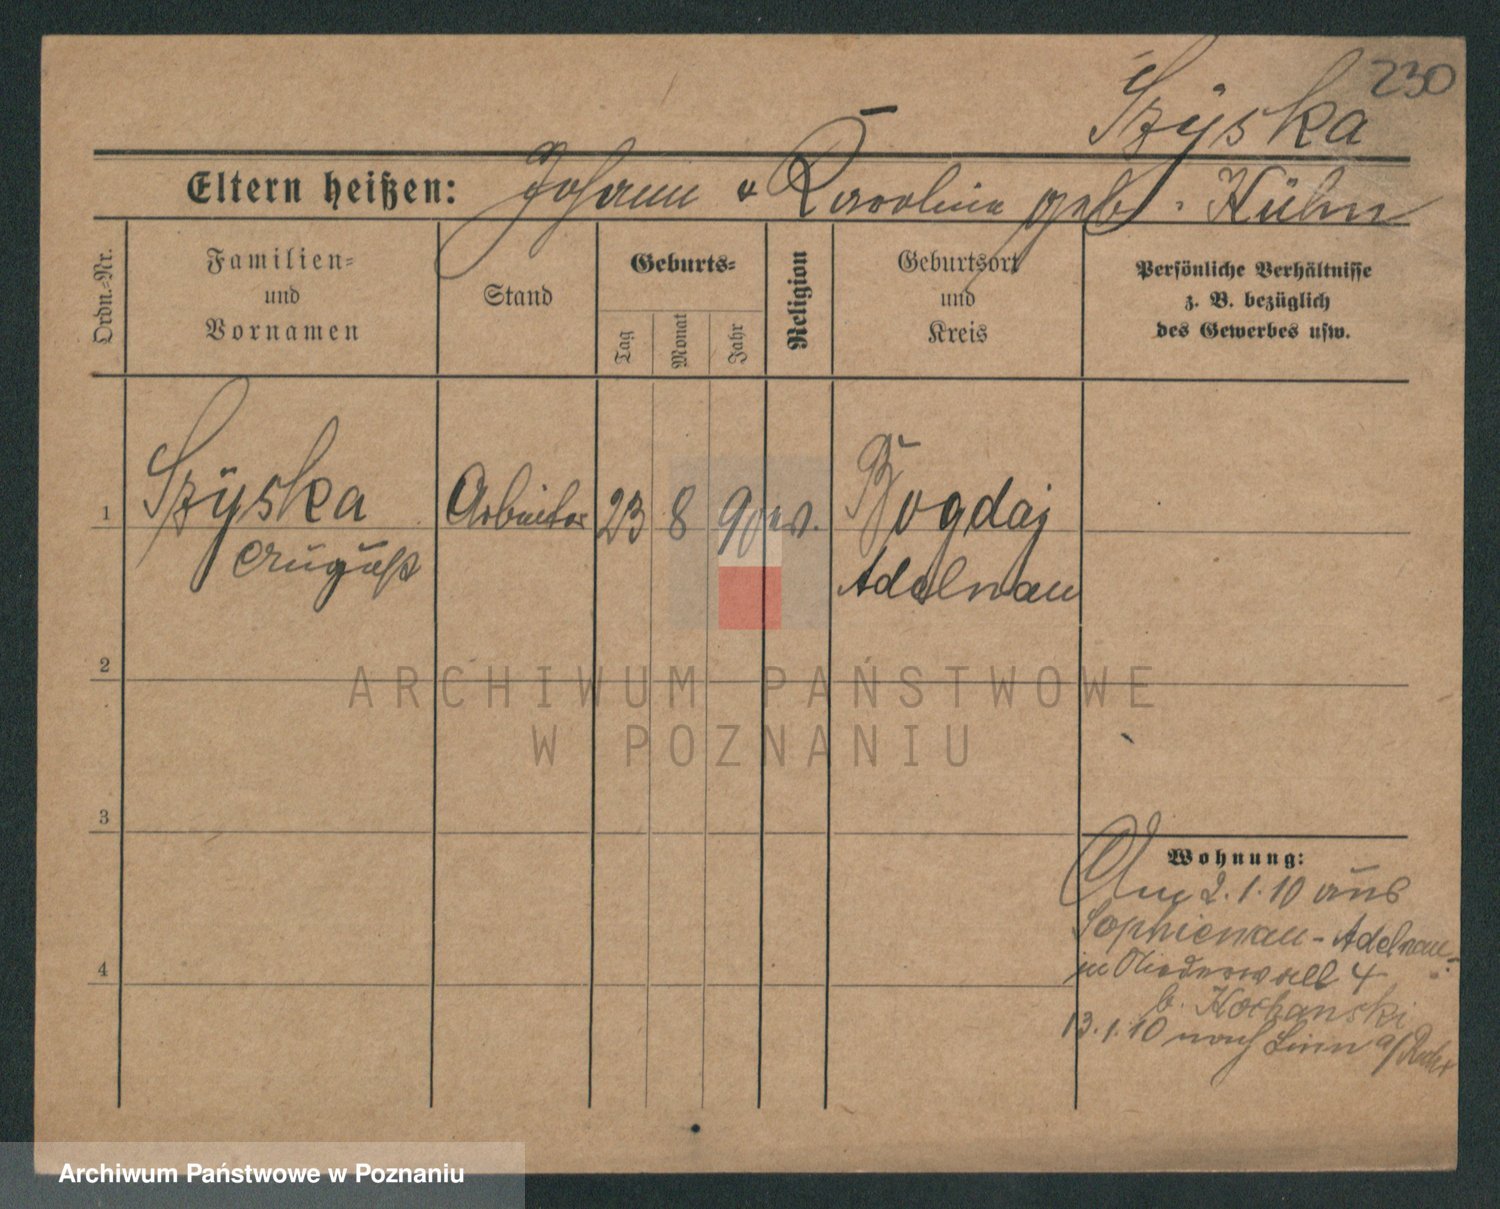 230
Szÿska
Eltern heißen: Johann u Karoline geb. Kühn
Ordn.-Nr.
Familien-
und
Vornamen
Stand
Geburts-
Tag
Monat
Jahr
Religion
Geburtsort
und
Kreis
Persönliche Verhältnisse
z. B. bezüglich
des Gewerbes usw.
1 Szÿska Arbeiter 23 8 90 ev. Bogdaj
August Adelnau
2
ARCHIWUM PAŃSTWOWE
W POZNANIU
3
Wohnung:
Am 2.1.10 aus
Sophienau-Adelnau
in Niederwall 4
4
b. Kochanski
13.1.10 nach Linn a/
Archiwum Państwowe w Poznaniu